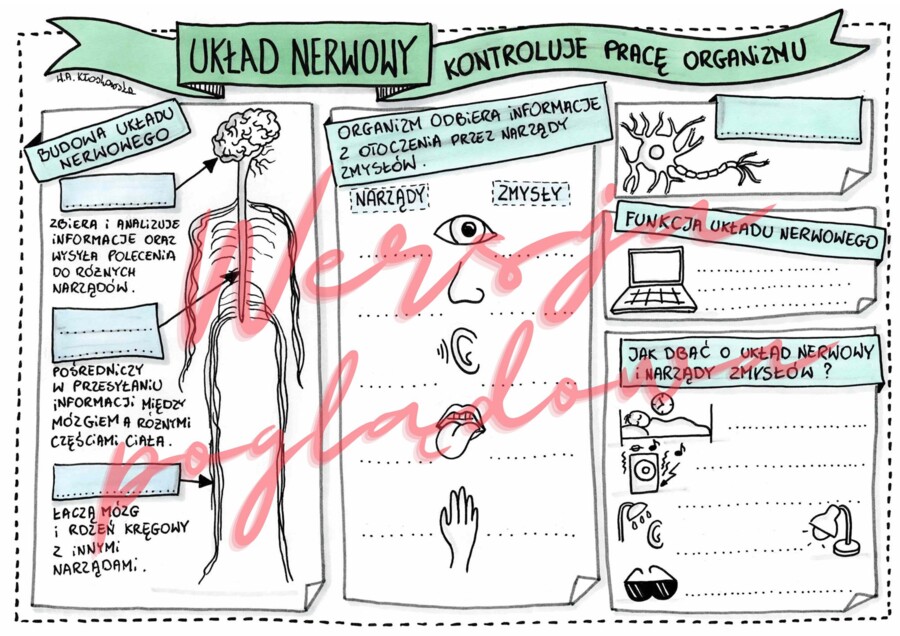 UKŁAD NERWOWY
KONTROLUJE PRACĘ ORGANIZMU
H.A. Kłosowska
BUDOWA UKŁADU
NERWOWEGO
ZBIERA I ANALIZUJE
INFORMACJE ORAZ
WYSYŁA POLECENIA
DO RÓŻNYCH
NARZĄDÓW.
POŚREDNICZY
W PRZESYŁANIU
INFORMACJI MIĘDZY
MÓZGIEM A RÓŻNYMI
CZĘŚCIAMI CIAŁA.
ŁĄCZĄ MÓZG
I RDZEŃ KRĘGOWY
Z INNYMI
NARZĄDAMI.
ORGANIZM ODBIERA INFORMACJE
Z OTOCZENIA PRZEZ NARZĄDY
ZMYSŁÓW.
NARZĄDY ZMYSŁY
FUNKCJA UKŁADU NERWOWEGO
JAK DBAĆ O UKŁAD NERWOWY
I NARZĄDY ZMYSŁÓW?
Wersja
poglądowa